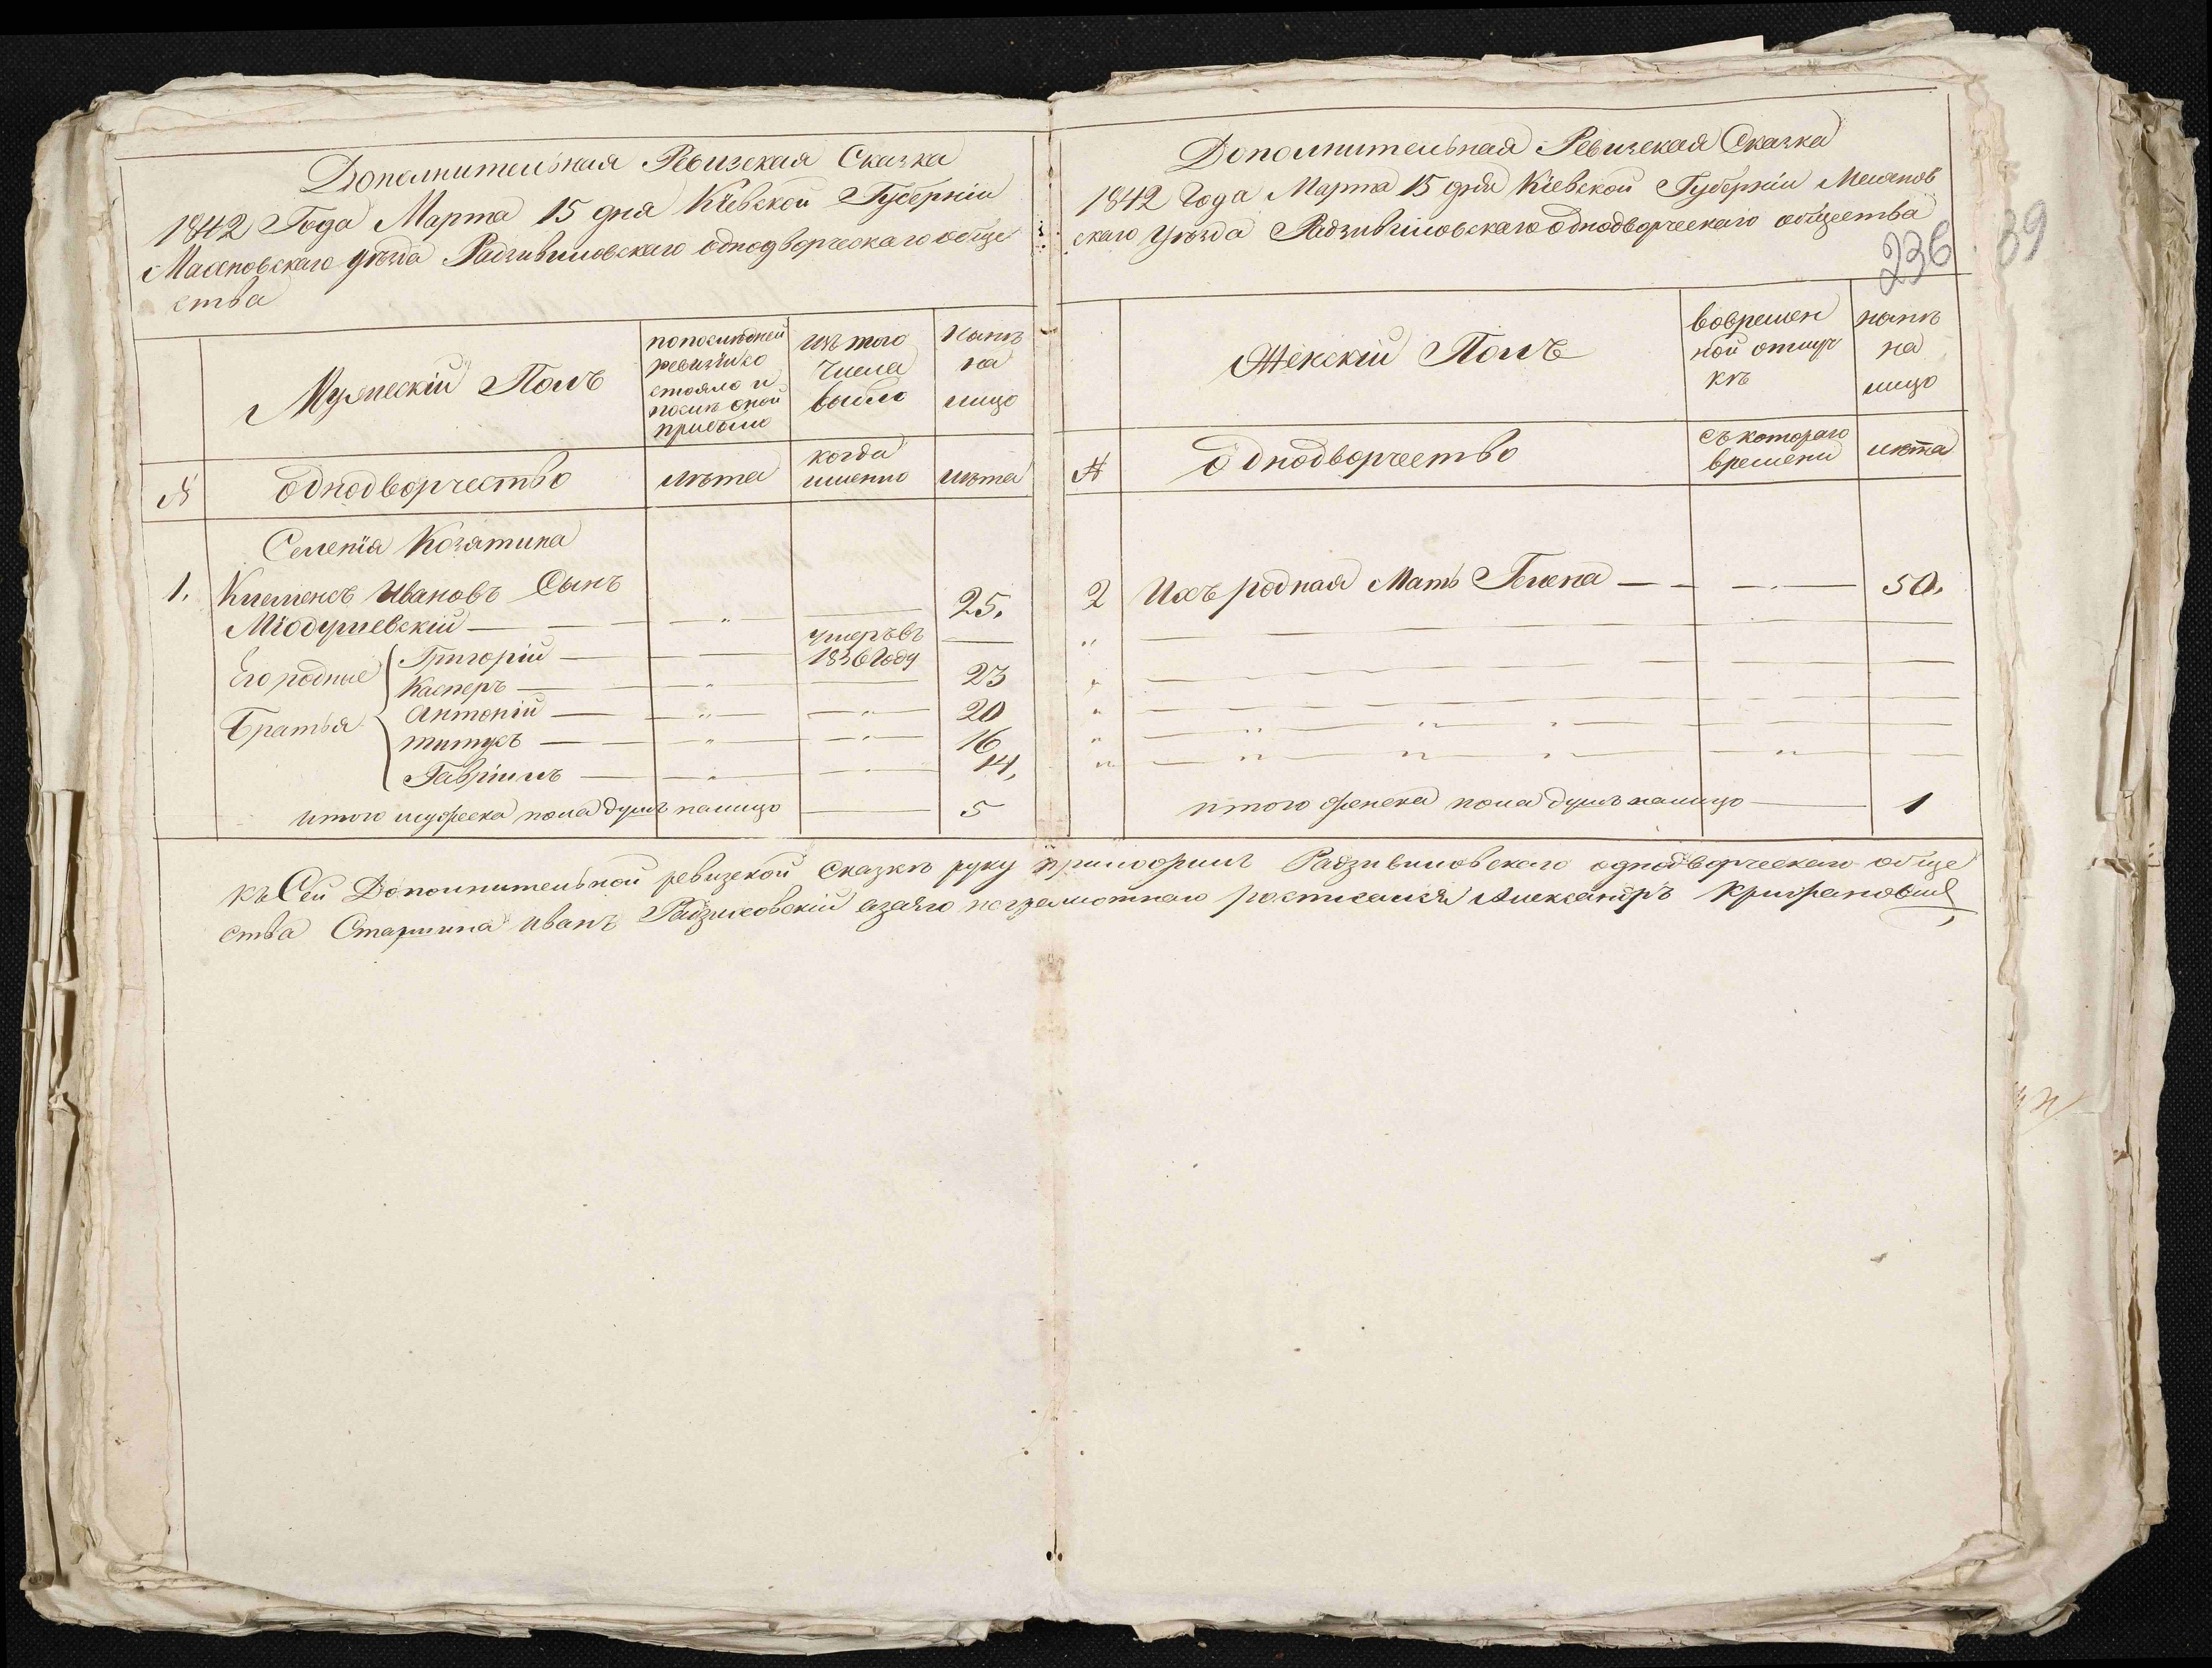 Дополнительная Ревизская Сказка
1842 Года Марта 15 дня Кіевской Губерніи
Махновскаго уѣзда Радзивиловскаго однодворческаго обще
ства
Мужескій Полъ
попослѣдней
ревизіи со
стояло и
послѣ оной
прибыло
изъ того
числа
выбыло
Нынѣ
на
лицо
№
Однодворчество
лѣта
когда
именно
лѣта
Селенія Козятина
1. Клеменсъ Ивановъ Сынъ
Міодушевскій — — — " — 25.
Его родные
Братья
Григорій — — умеръ въ
1836 Году —
Касперъ — — " — 23
Антоній — — " — " — 20
титусъ — — " — " — 16
Гавріилъ — — " — " — 14,
итого мужеска пола душъ налицо — 5
Дополнительная Ревизская Сказка
1842 Года Марта 15 дня Кіевской Губерніи Махнов
скаго Уѣзда Радзивиловскаго однодворческаго общества
236
39
Женскій Полъ
вовремен
ной отлуч
кѣ
нынѣ
на
лицо
№
Однодворчество
съ котораго
времени
лѣта
2 Ихъ родная Мать Гелена — — — 50.
итого женска пола душъ налицо — 1
къ Сей Дополнительной ревизской сказкѣ руку приложилъ Радзивиловскаго однодворческаго обще
ства Старшина Иванъ азанего неграмотнаго росписался Александръ